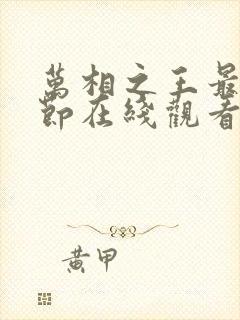 萬相之王最
節在綫觀看
黃甲